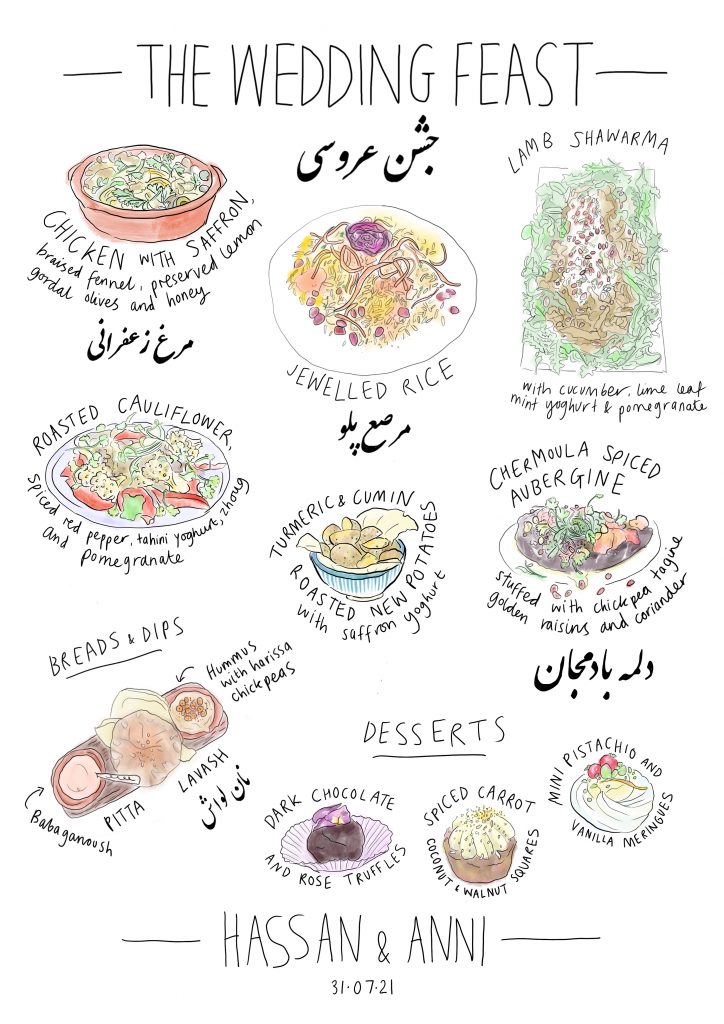 THE WEDDING FEAST
جشن عروسی
CHICKEN WITH SAFFRON,
braised fennel, preserved lemon
gordal olives and honey
مرغ زعفرانی
JEWELLED RICE
مرصع پلو
LAMB SHAWARMA
with cucumber, lime leaf
mint yoghurt & pomegranate
ROASTED CAULIFLOWER,
spiced red pepper, tahini yoghurt, zhoug
and pomegranate
TURMERIC & CUMIN
ROASTED NEW POTATOES
with saffron yoghurt
CHERMOULA SPICED
AUBERGINE
stuffed with chickpea tagine
golden raisins and coriander
دلمه بادمجان
BREADS & DIPS
Hummus
with harissa
chickpeas
Babaganoush
PITTA
LAVASH
نان لواش
DESSERTS
DARK CHOCOLATE
AND ROSE TRUFFLES
SPICED CARROT
COCONUT & WALNUT SQUARES
MINI PISTACHIO AND
VANILLA MERINGUES
HASSAN & ANNI
31·07·21